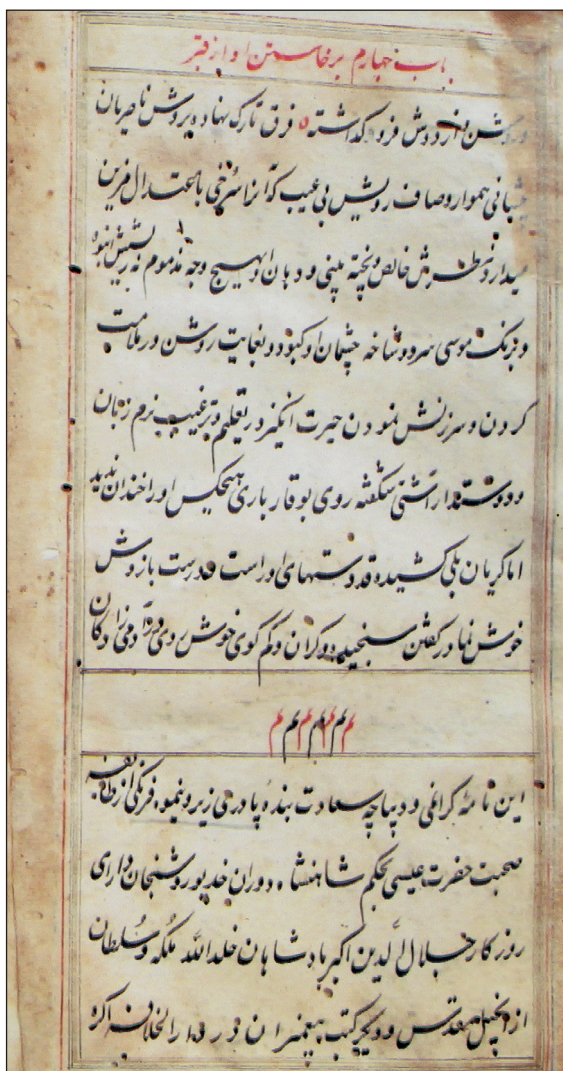 باب چهارم برخاستن او از قبر
و روشن و از دوش فرو گذاشته فرق تارک نهاده بروش ناصریان
پیشانی هموار و صاف رویش بی عیب که آنرا سرخی باعتدال مزین
میدارد نظرش خالص و پخته بینی و دهان او بهیچ وجه مذموم نه ریشش انبوه
و برنگ موی سر دو شاخه چشمان او کبود و بغایت روشن در ملامت
کردن و سرزنش نمودن حیرت انگیز در تعلیم و ترغیب نرم زبان
و دوستدار اشنی شگفته روی بوقار باری هیچکس او را خندان ندید
اما کریان بلی کشیده قد دستهای او راست و درست بازوش
خوش نما در کفتن سنجیده و کران و کم کوی خوش روی در آدمی زادکان
م م م م م م
این نامه کرامی و دیباچه سعادت بنده پادری زیرونیمو فرنکی از طایفه
صحبت حضرت عیسی بحکم شاهنشاه دوران خدیو روشنجان دارای
روزکار جلال الدین اکبر پادشاهان خلد الله ملکه و سلطان
از انجیل مقدس و دیکر کتب پیغمبران در دار الخلافه اکره